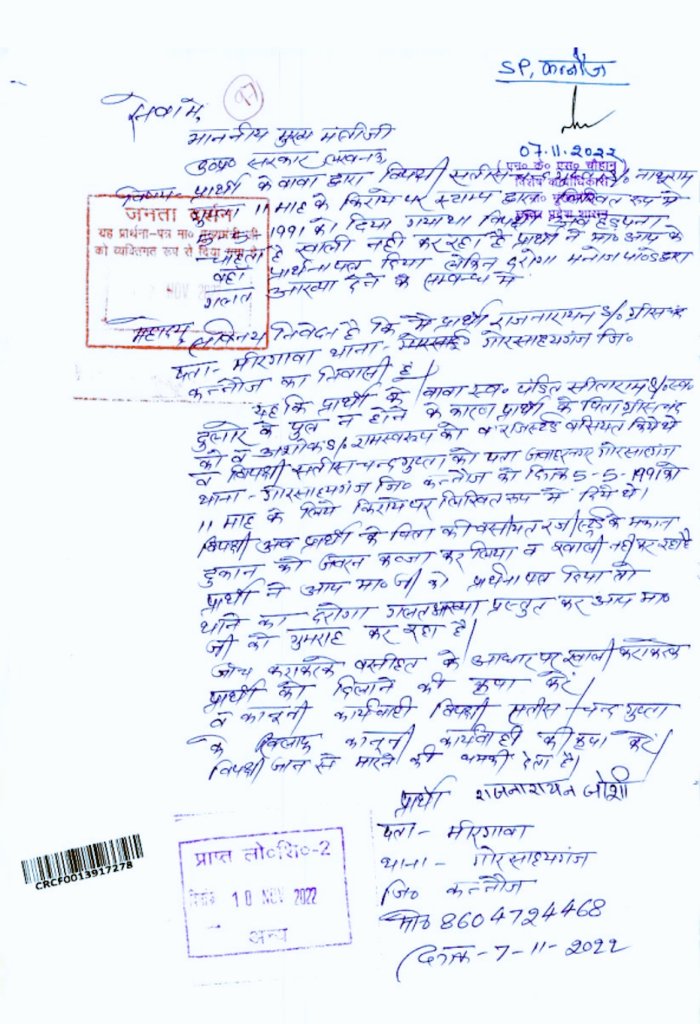 SP, कन्नौज
97
सेवा में,
07.11.2022
माननीय मुख्य मंत्री जी
(एच० के० एस० चौहान)
उ०प्र० सरकार लखनऊ
विशेष कार्याधिकारी
विषय- प्रार्थी के बाबा द्वारा विपक्षी नाथूराम
11 माह के किराये पर स्टाम्प द्वारा लिखित रूप में
जनता दर्शन
यह प्रार्थना-पत्र मा०
को व्यक्तिगत रूप से दिया गया है
NOV
1991 को दिया गया था विपक्षी
है खाली नही कर रहा है प्रार्थी ने मा० आप के
यहां प्रार्थना पत्र दिया लेकिन दरोगा मनोज द्वारा
गलत आख्या देने के सम्बन्ध में
महोदय,
सविनय निवेदन है कि मै प्रार्थी राजनारायन S/०
पता- मीरगावा थाना- गोरसहायगंज जि०
कन्नौज का निवासी है
यह कि प्रार्थी के बाबा स्व० पंडित सीताराम S/० स्व०
दुलारे के पुत्र न होने के कारण प्रार्थी के पिता
को व अशोक S/० रामस्वरूप को व रजिस्टर्ड वसियत किये थे
व विपक्षी सतीस चन्द गुप्ता को पता जवाहरनगर
थाना- गोरसहायगंज जि० कन्नौज को दिनांक 5-5-1991 को
11 माह के लिये किराये पर लिखित रूप में दिये थे।
विपक्षी अब प्रार्थी के पिता की वसीयत के मकान
दुकान को जबरन कब्जा कर लिया व खाली नही कर रहा है
प्रार्थी ने आप मा० जी को प्रार्थना पत्र दिया तो
थाने का दरोगा गलत आख्या प्रस्तुत कर आप मा०
जी को गुमराह कर रहा है।
जांच कराकरके के आधार पर खाली कराकरके
प्रार्थी को दिलाने की कृपा करें
व कानूनी कार्यवाही विपक्षी सतीस चन्द गुप्ता
के खिलाफ कानूनी कार्यवाही की कृपा करें
विपक्षी जान से मारने की धमकी देता है।
प्रार्थी राजनारायन जोशी
पता- मीरगावा
थाना- गोरसहायगंज
जि० कन्नौज
मो० 8604724468
दिनांक-7-11-2022
प्राप्त लो०शि०-2
दिनांक 10 NOV 2022
अन्य
CRCF0013917278